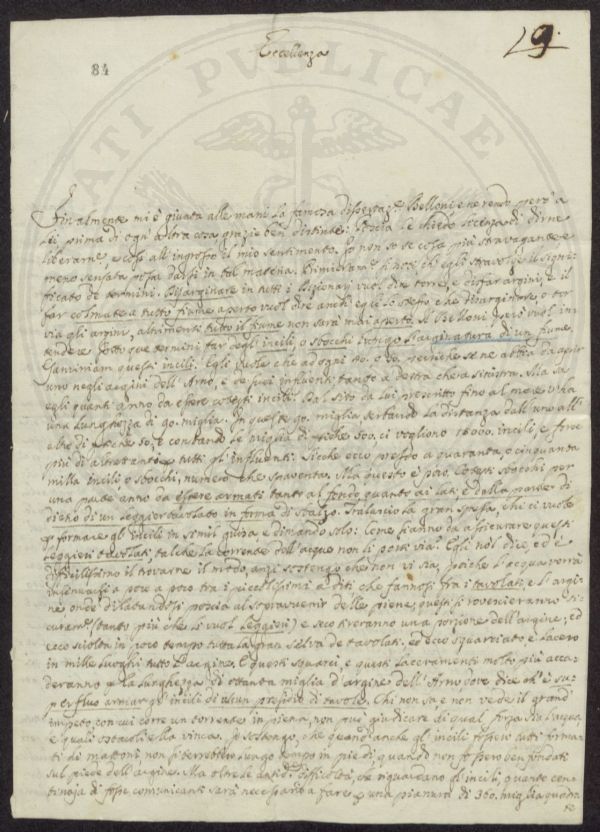 Eccellenza
29.
84
PUBLICAE
Finalmente mi è giunta alle mani la famosa dissertaz.e Belloni e ne rendo però a
Lei, prima di ogn'altra cosa grazie ben distinte: Poscia Le chiedo licenza di dirne
liberam.e, e così all'ingrosso il mio sentimento. Io non so se cosa più stravagante e
meno sensata possa darsi in tal materia. Primieram.e si noti ch'egli stravolge il signi-
ficato de' termini. Disarginare in tutti i Dizionarj vuol dire torre, e disfar argini, e il
far col mezzo tutto fiume aperto vuol dire anch' egli lo stesso che disarginare, o tor
via gli argini, altrimenti tutto il fiume non sarà mai aperto. Il Belloni però vuol in-
tendere sotto que' termini far degl' incili, o sbocchi lungo l'arginatura di un fiume.
Esaminiam questi incili. Egli vuole che ad ogni 40. o 50. pertiche se ne abbia da aprir
uno negli argini dell' Arno, e de' suoi influenti tanto a destra che a sinistra. Ma sa
egli quanti anno da essere cotesti incili? Dal sito da lui prescritto fino al mare v'ha
una lunghezza di 90. miglia. In queste 90. miglia serbando la distanza dall' uno all'
altro di pertiche 50, e contando le miglia di pertiche 500, ci vogliono 18000. incili, e forse
più di altrettanti per tutti gl' influenti. Sicchè ecco presso a quaranta, o cinquanta
milla incili o sbocchi, numero che spaventa. Ma questo è poco. Cotesti sbocchi per
una parte anno da essere armati tanto al fondo quanto ai lati e dalla parte di
dietro di un leggier tavolato in forma di sbalzo. Tralascio la gran spesa, che ci vuole
per formare gl' incili in simil guisa, e dimando solo: Come s'anno da assicurare questi
leggieri tavolati, talche la corrente dell' acque non li porti via? Egli nol dice, ed è
difficilissimo il trovarne il modo, anzi sostengo che non vi sia, poichè l'acqua verrà
insinuarsi a poco a poco tra i piccolissimi aditi che fannosi fra i tavolati e l'argi-
ne, onde dilatandosi poscia al sopravvenir delle piene, questi si rovescieranno si-
curam.e (tanto più che si vuol leggieri) e seco tireranno una porzione dell' argine, ed
ecco sciolta in poco tempo tutta la gran selva de' tavolati, ed ecco squarciato e lacero
in mille luoghi tutto l'argine. E questi squarci, e questi laceramenti molto più acca-
deranno per la lunghezza di ottanta miglia d'argine dell' Arno dove dice ch' è su-
perfluo armar gl' incili di alcun presidio di tavole. Chi non sa e non vede il grand'
impeto con cui corre un torrente in piena, non può giudicare di qual forza sia l'acqua
e quali ostacoli ella vinca. Io sostengo, che quand' anche gl' incili fossero tutti forma-
ti di mattoni non si terrebbero lungo tempo in piedi quando non fossero ben fondati
sul piede dell' argine. Ma oltre le dette difficoltà, che riguardano gl' incili, quante cen-
tinaja di fosse comunicanti sarà necessario a fare per una pianura di 360. miglia quadra
te